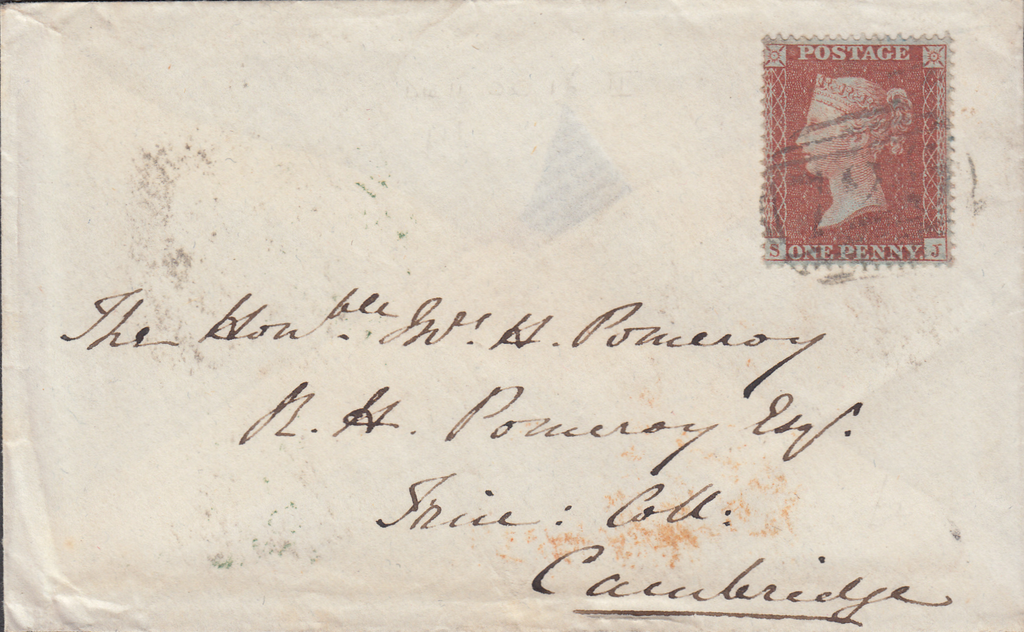 POSTAGE
S ONE PENNY J
The Honble. Jno. H. Pomeroy
R. H. Pomeroy Esqr.
Trin: Coll:
Cambridge